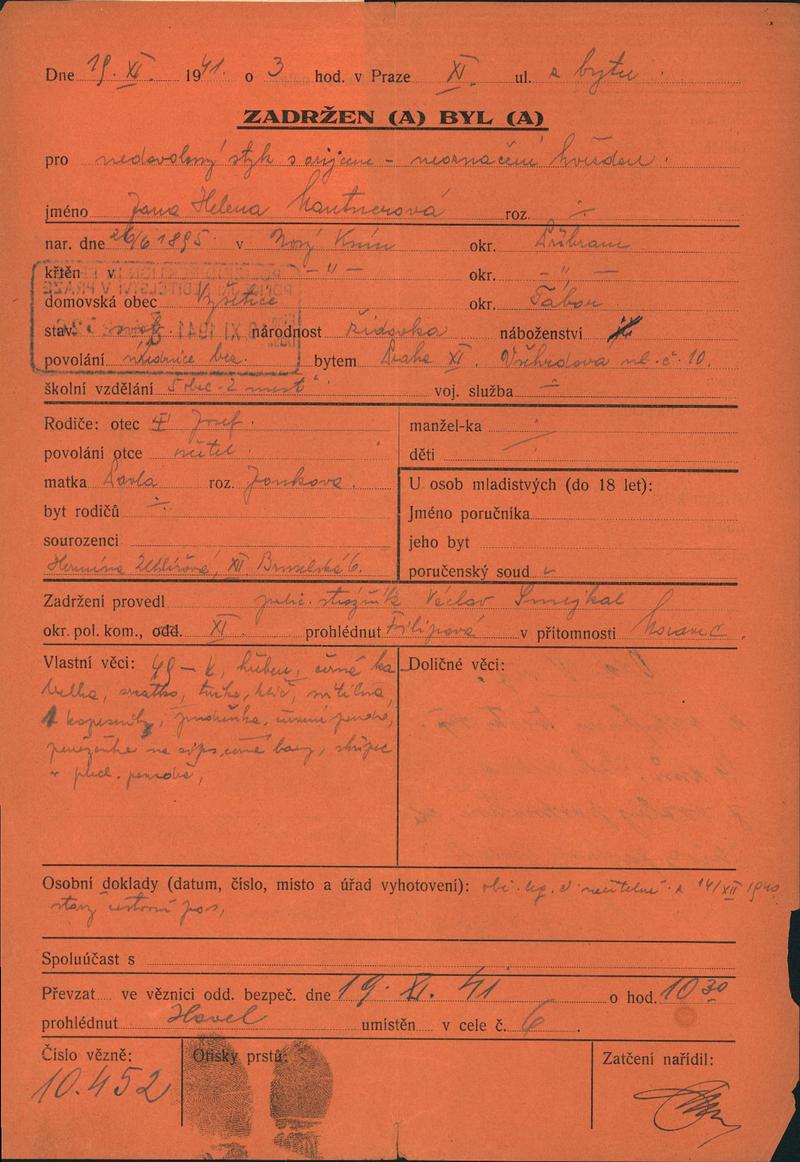 Dne 19. XI. 1941. o 3 hod. v Praze XI. ul. z bytu.
ZADRŽEN (A) BYL (A)
pro nedovolený styk s arijcem – neoznačení hvězdou.
jméno Jana Helena Mautnerová roz. ./.
nar. dne 26/6 1895. v Nový Knín okr. Příbram
křtěn v –"– okr. –"–
domovská obec okr. Tábor
stav: národnost židovka náboženství
povolání úřednice bez. bytem Praha XI. Všehrdova ul. č. 10.
školní vzdělání 5 obec. 2 měšť voj. služba
Rodiče: otec Josef.
povolání otce učitel.
matka Pavla roz. Jonkova.
byt rodičů ./.
sourozenci
Hermína Uhlířová, XII. Bruselská 6.
manžel-ka
děti
U osob mladistvých (do 18 let):
Jméno poručníka
jeho byt
poručenský soud
Zadržení provedl polic. strážník Václav Smejkal
okr. pol. kom., odd. XI. prohlédnut Filipová v přítomnosti Moravec.
Vlastní věci: 49 – K, hřeben, černá ka
belka, zrcátko, tužka, klíč,
1 kapesníky, jmenovka, černé pouzdro,
peněženka na zips, černé boty, skřipec
v plech. pouzdře,
Doličné věci:
Osobní doklady (datum, číslo, místo a úřad vyhotovení): obč. leg. z 14/XII 1940,
starý cestovní pas,
Spoluúčast s
Převzat ve věznici odd. bezpeč. dne 19. XI. 41 o hod. 10 30
prohlédnut Havel umístěn v cele č. 6.
Číslo vězně:
10.452
Otisky prstů:
Zatčení nařídil: